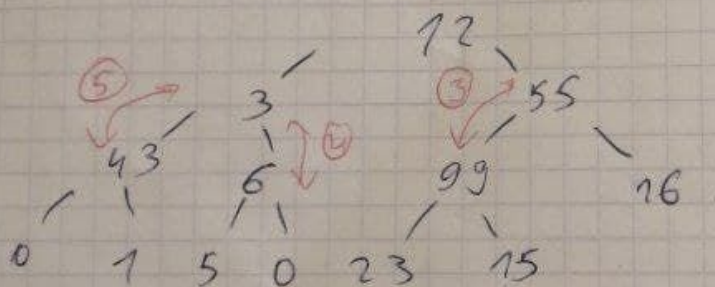 12
⑤ 3 ③ 55
④
43 6 99 16
0 1 5 0 23 15